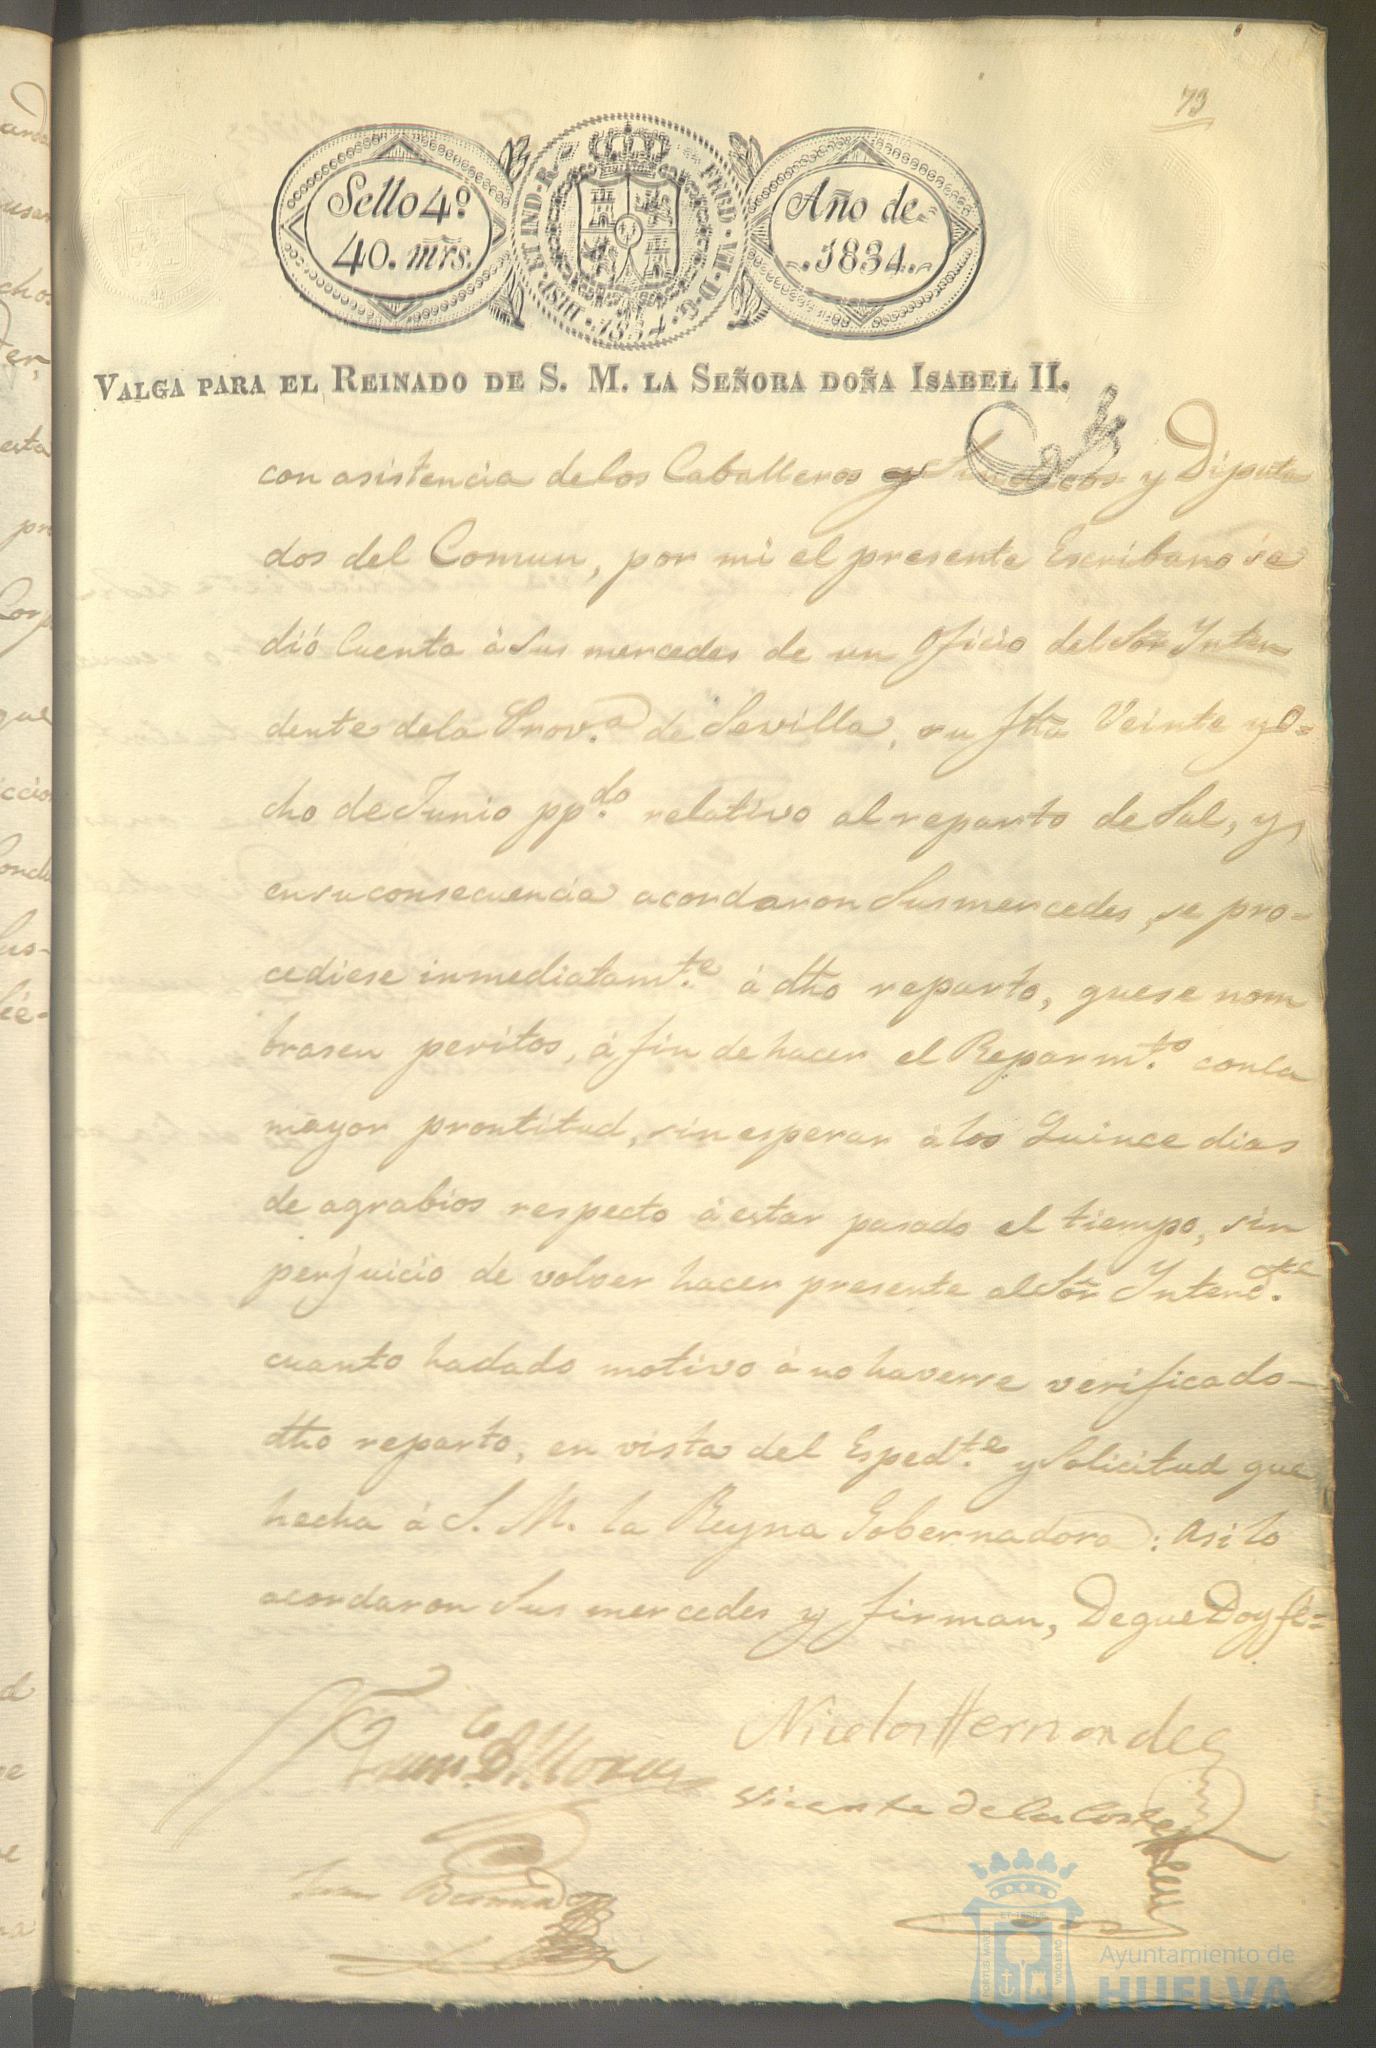 73
Sello 4º
40. mrs.
HISP. ET IND. R. FERD. VII. D. G. 1834.
Año de
1834.
VALGA PARA EL REINADO DE S. M. LA SEÑORA DOÑA ISABEL II.
con asistencia de los Caballeros y Sindicos y Diputa
dos del Comun, por mi el presente Escribano se
dió Cuenta á Sus mercedes de un Oficio del Sor Inten
dente de la Prov.a de Sevilla, su fha Veinte y O=
cho de Junio pp.do relativo al reparto de Sal, y
en su consecuencia acordaron Sus mercedes, se pro=
cediese inmediatam.te á dho reparto, que se nom
brasen peritos, á fin de hacer el Reparm.to con la
mayor prontitud, sin esperar á los Quince dias
de agrabios respecto á estar pasado el tiempo, sin
perjuicio de volver hacer presente al Sor Intend.te
cuanto ha dado motivo á no haverse verificado
dho reparto, en vista del Esped.te y Solicitud que
hecha á S. M. la Reyna Gobernadora: Asi lo
acordaron Sus mercedes y firman, De que Doy fé=
Nicolas Hernandez
Vicente de la Corte
Juan
Ayuntamiento de
HUELVA